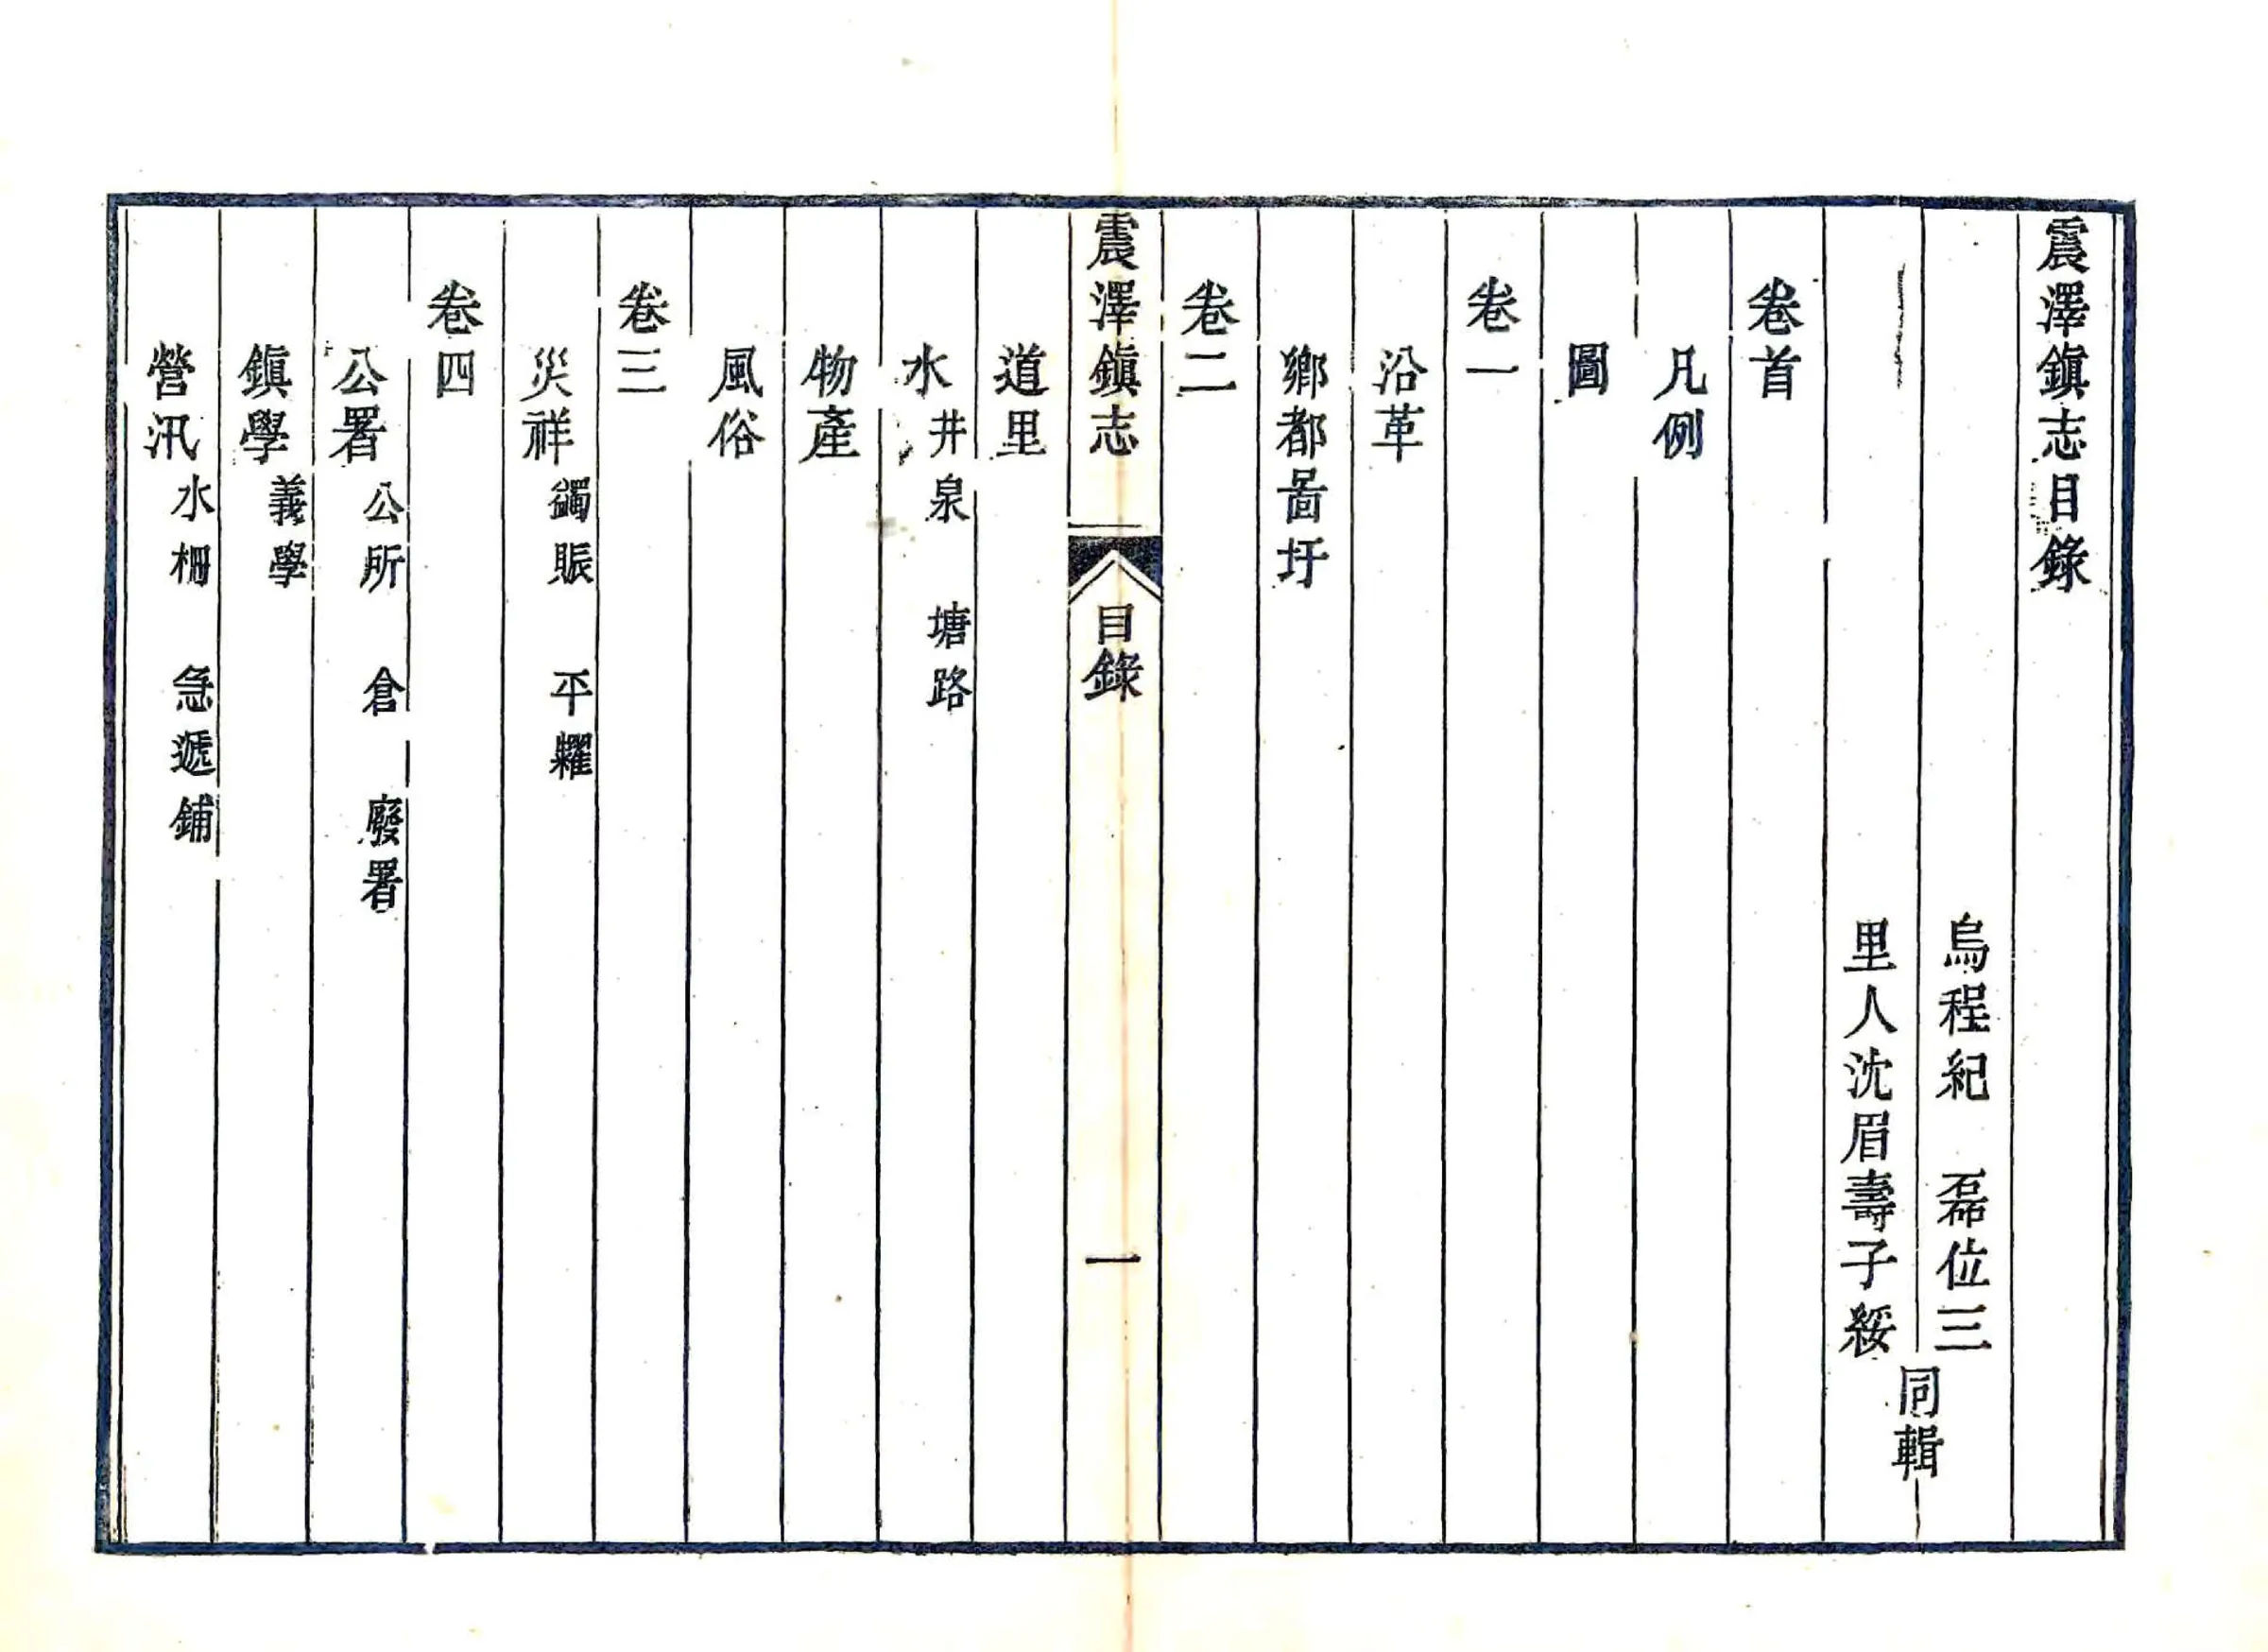 震澤鎮志目錄
烏程紀　磊位三
里人沈眉壽子綏
同輯
卷首
凡例
圖
卷一
沿革
鄉都啚圩
卷二
震澤鎮志　目錄　一
道里
水　井泉　塘路
物產
風俗
卷三
災祥　蠲賑　平糶
卷四
公署　公所　倉　廢署
鎮學　義學
營汛　水柵　急遞鋪